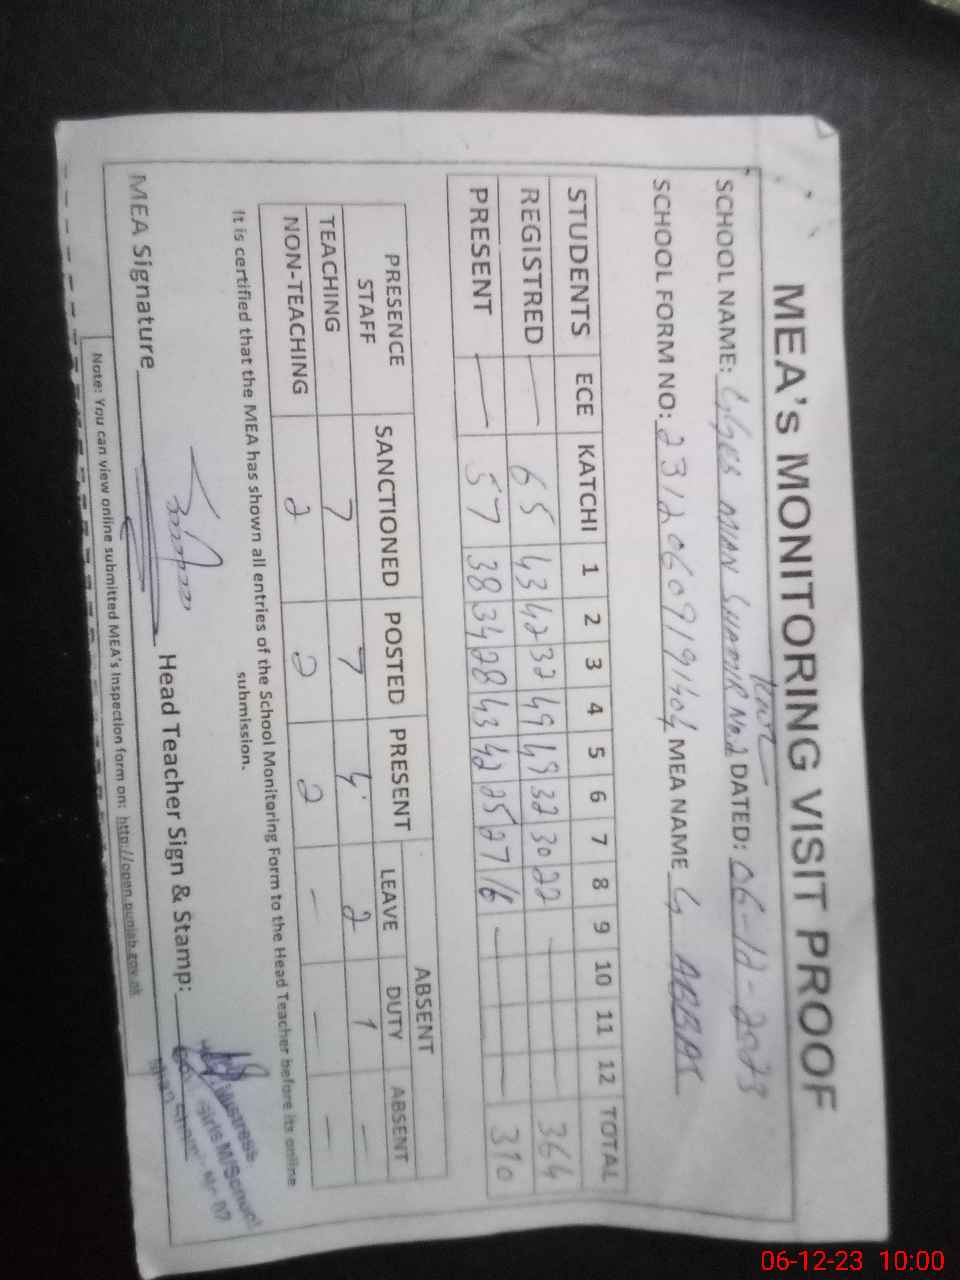 MEA's MONITORING VISIT PROOF
SCHOOL NAME: GGES MIAN SHAMIR No.2 DATED: 06-12-2023
SCHOOL FORM NO: MEA NAME G ABBAS
STUDENTS ECE KATCHI 1 2 3 4 5 6 7 8 9 10 11 12 TOTAL
REGISTRED — 65 43 42 32 49 49 32 30 22 — 364
PRESENT — 57 38 34 28 43 42 25 27 16 — — 310
PRESENCE STAFF SANCTIONED POSTED PRESENT ABSENT
LEAVE DUTY ABSENT
TEACHING 7 7 4 2 1 —
NON-TEACHING 2 2 2 — — —
It is certified that the MEA has shown all entries of the School Monitoring Form to the Head Teacher before its online
submission.
MEA Signature Head Teacher Sign & Stamp:
Mistress
Girls M/School
Note: You can view online submitted MEA's Inspection form on: http://open.punjab.gov.pk
06-12-23 10:00